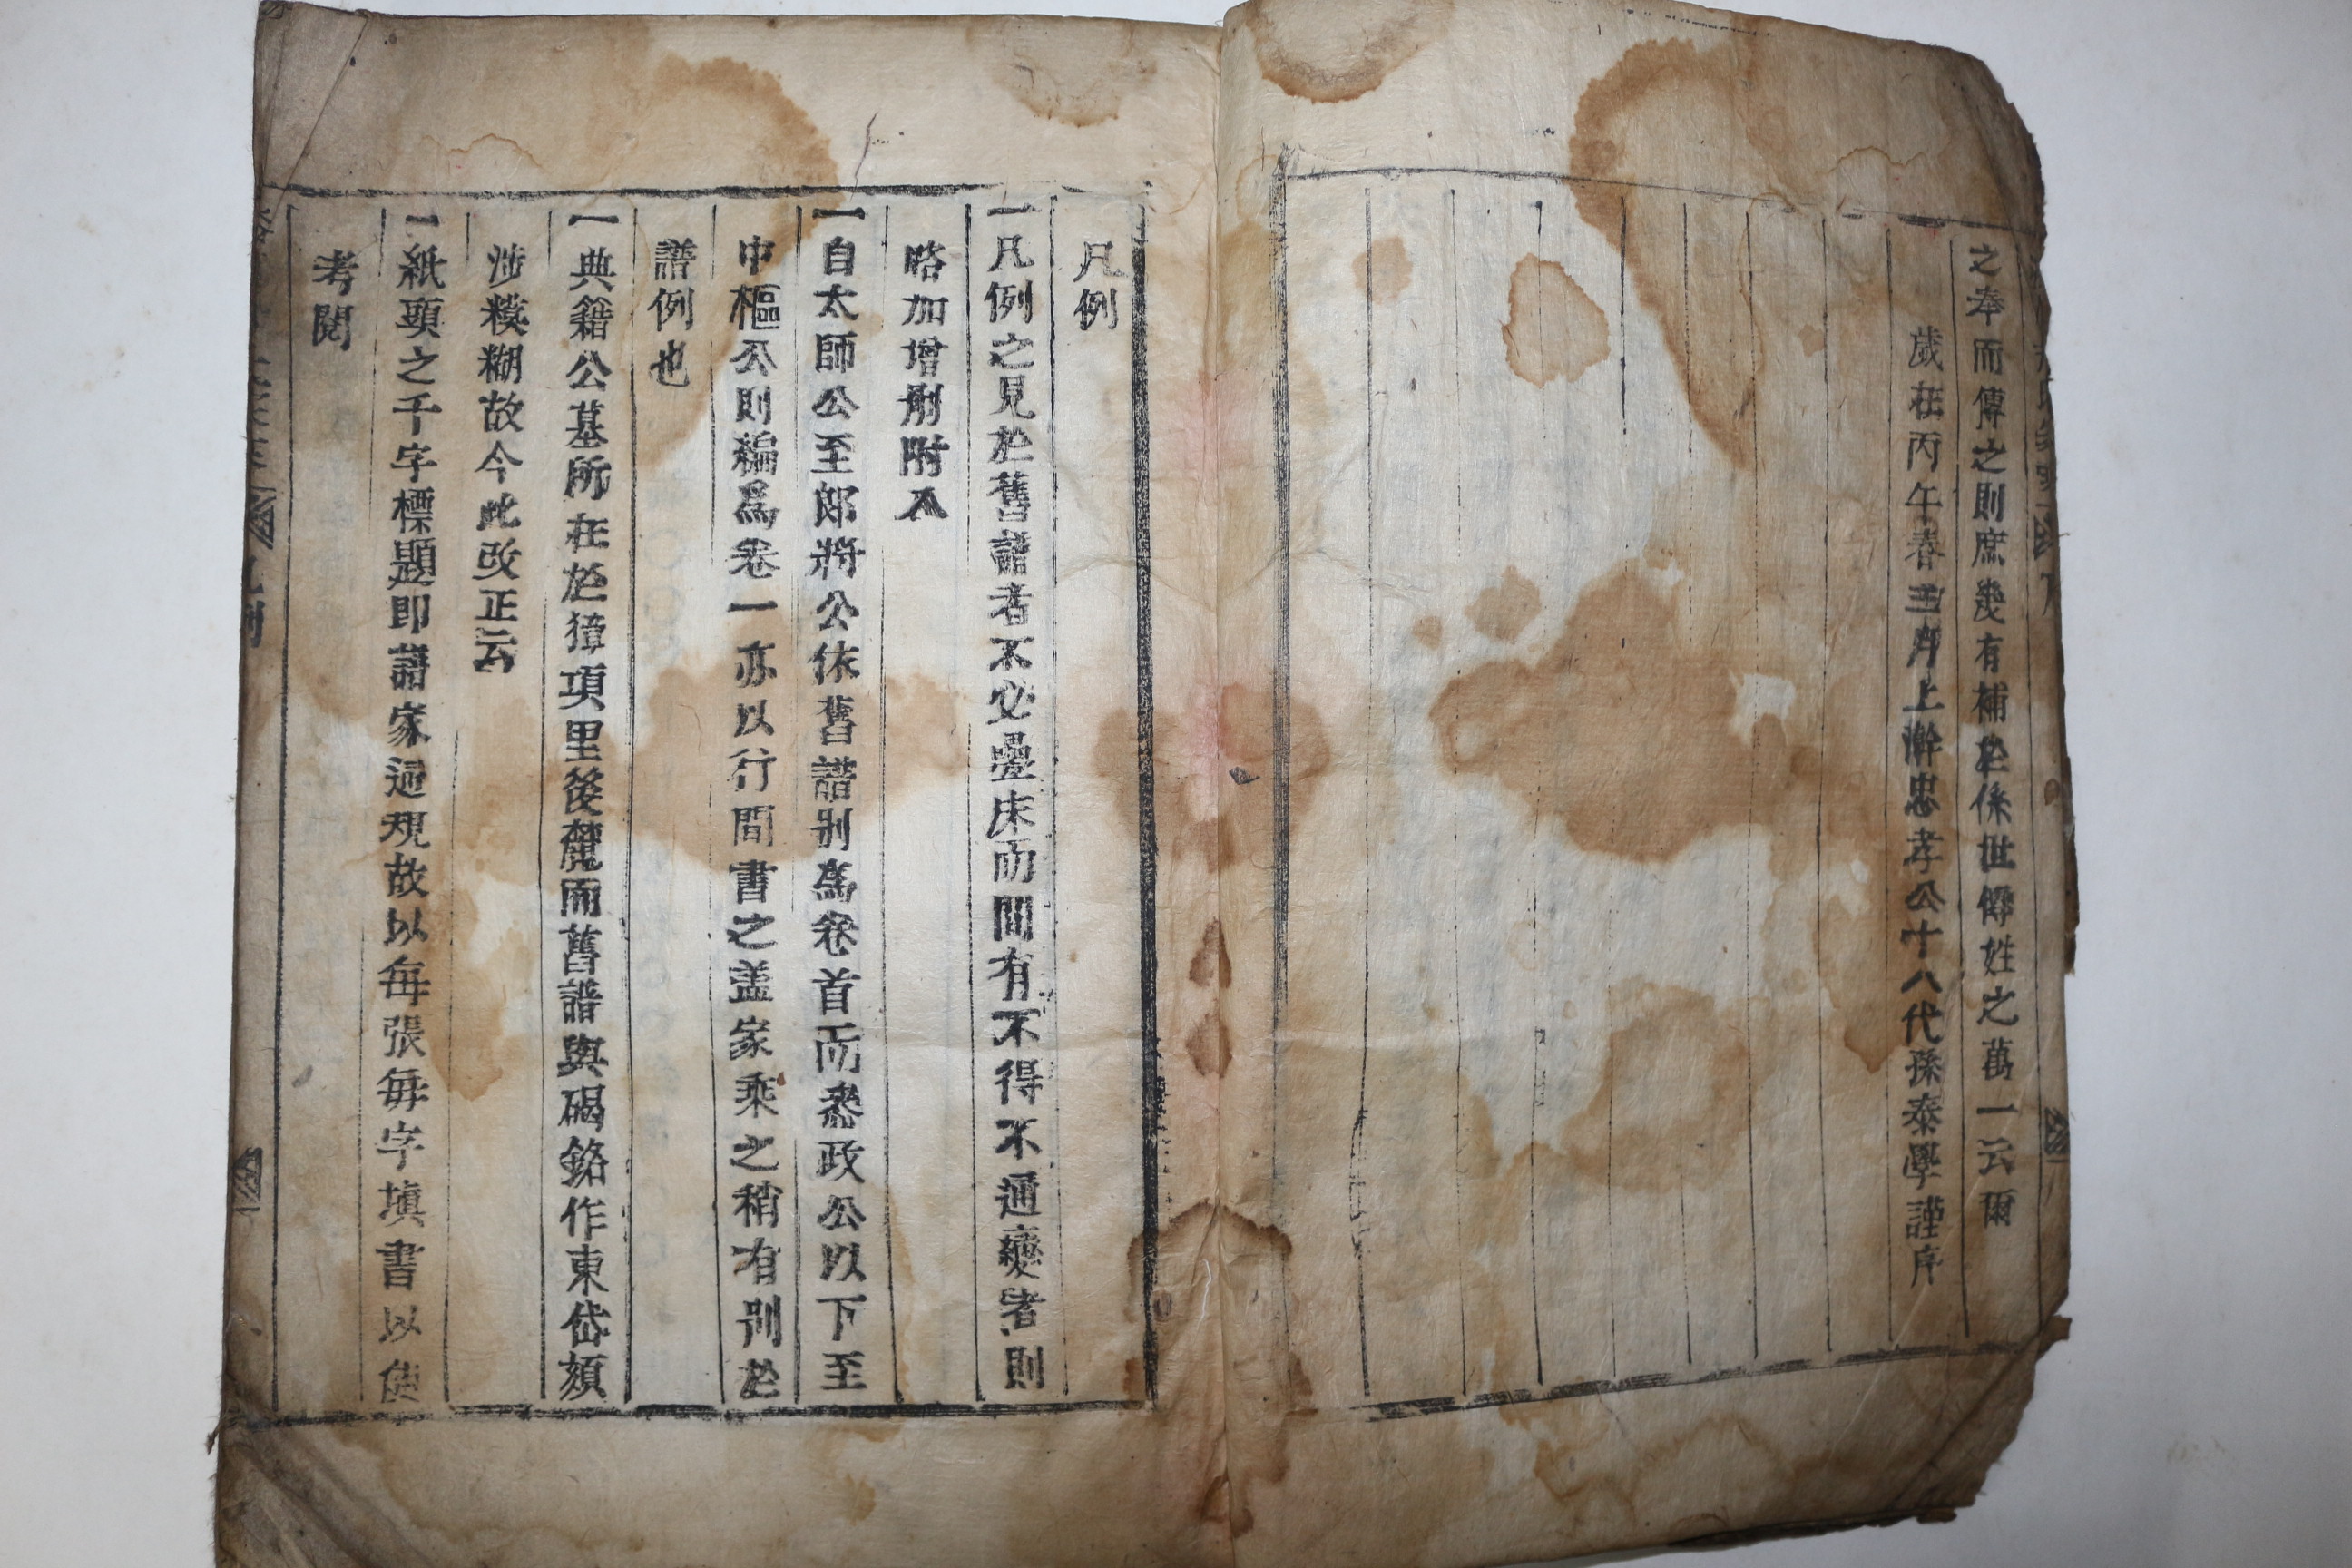 之奉而傳之則庶幾有補於係世僻姓之萬一云爾
歲在丙午春王月上澣忠孝公十八代孫泰學謹序
凡例
一凡例之見於舊譜者不必疊床而間有不得不通變者則
略加增刪附入
一自太師公至郎將公依舊譜別爲卷首而叅政公以下至
中樞公則編爲卷一亦以行間書之盖家乘之稍有別於
譜例也
一典籍公墓所在於獐項里後麓而舊譜與碣銘作東岱頦
涉糢糊故今此改正云
一紙頭之千字標題即譜家通規故以每張每字塡書以便
考閱